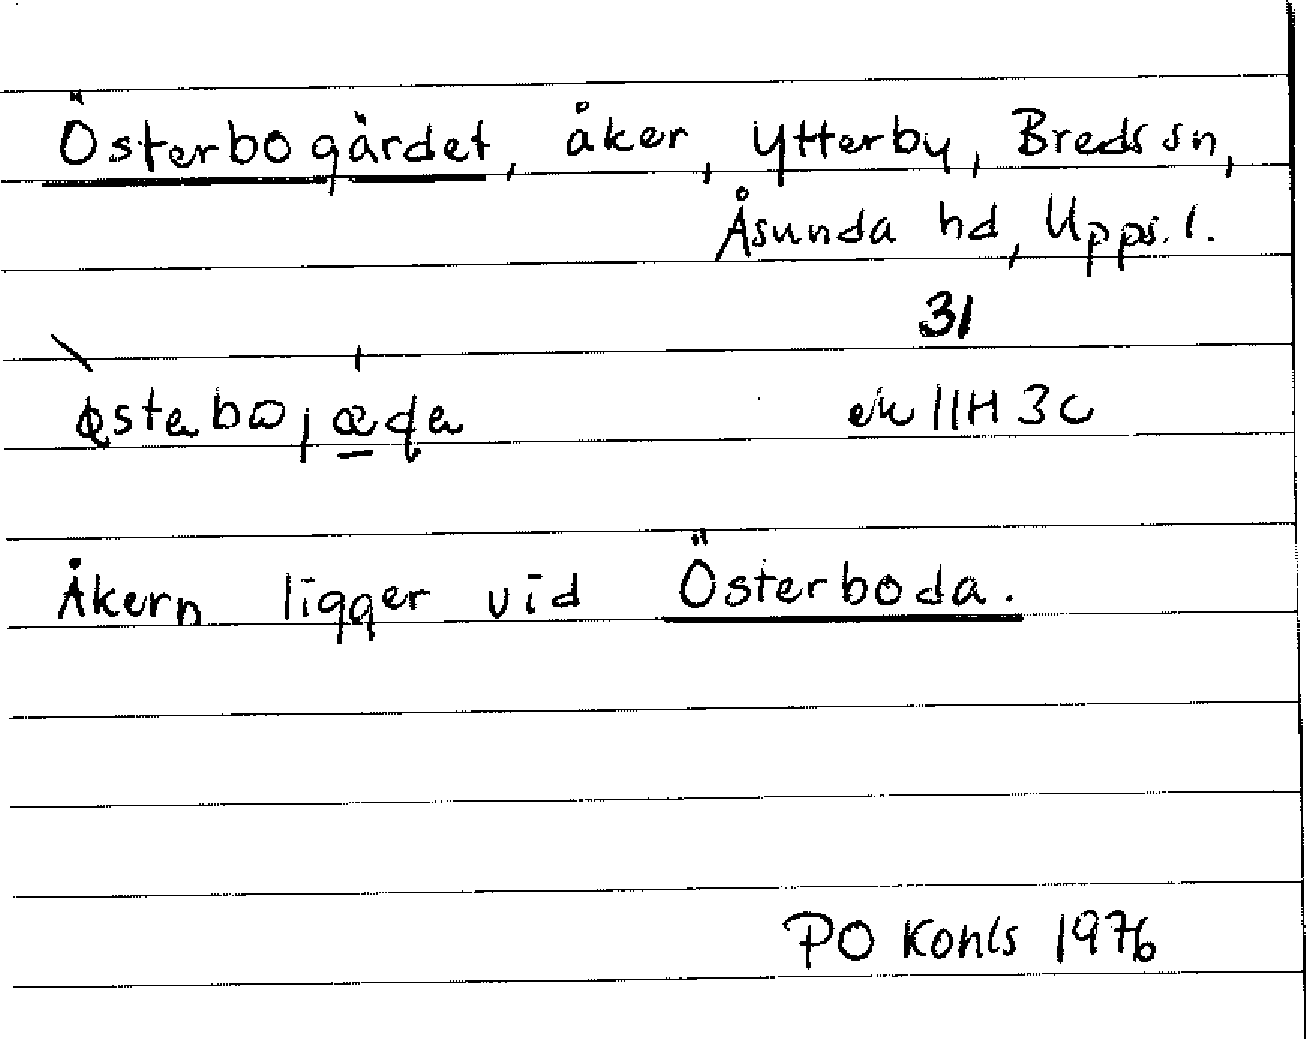 Österbogärdet, åker, Ytterby, Breds sn,
Åsunda hd, Upps. l.
31
ek 11H 3c
Åkern ligger vid Österboda.
PO Kohls 1976